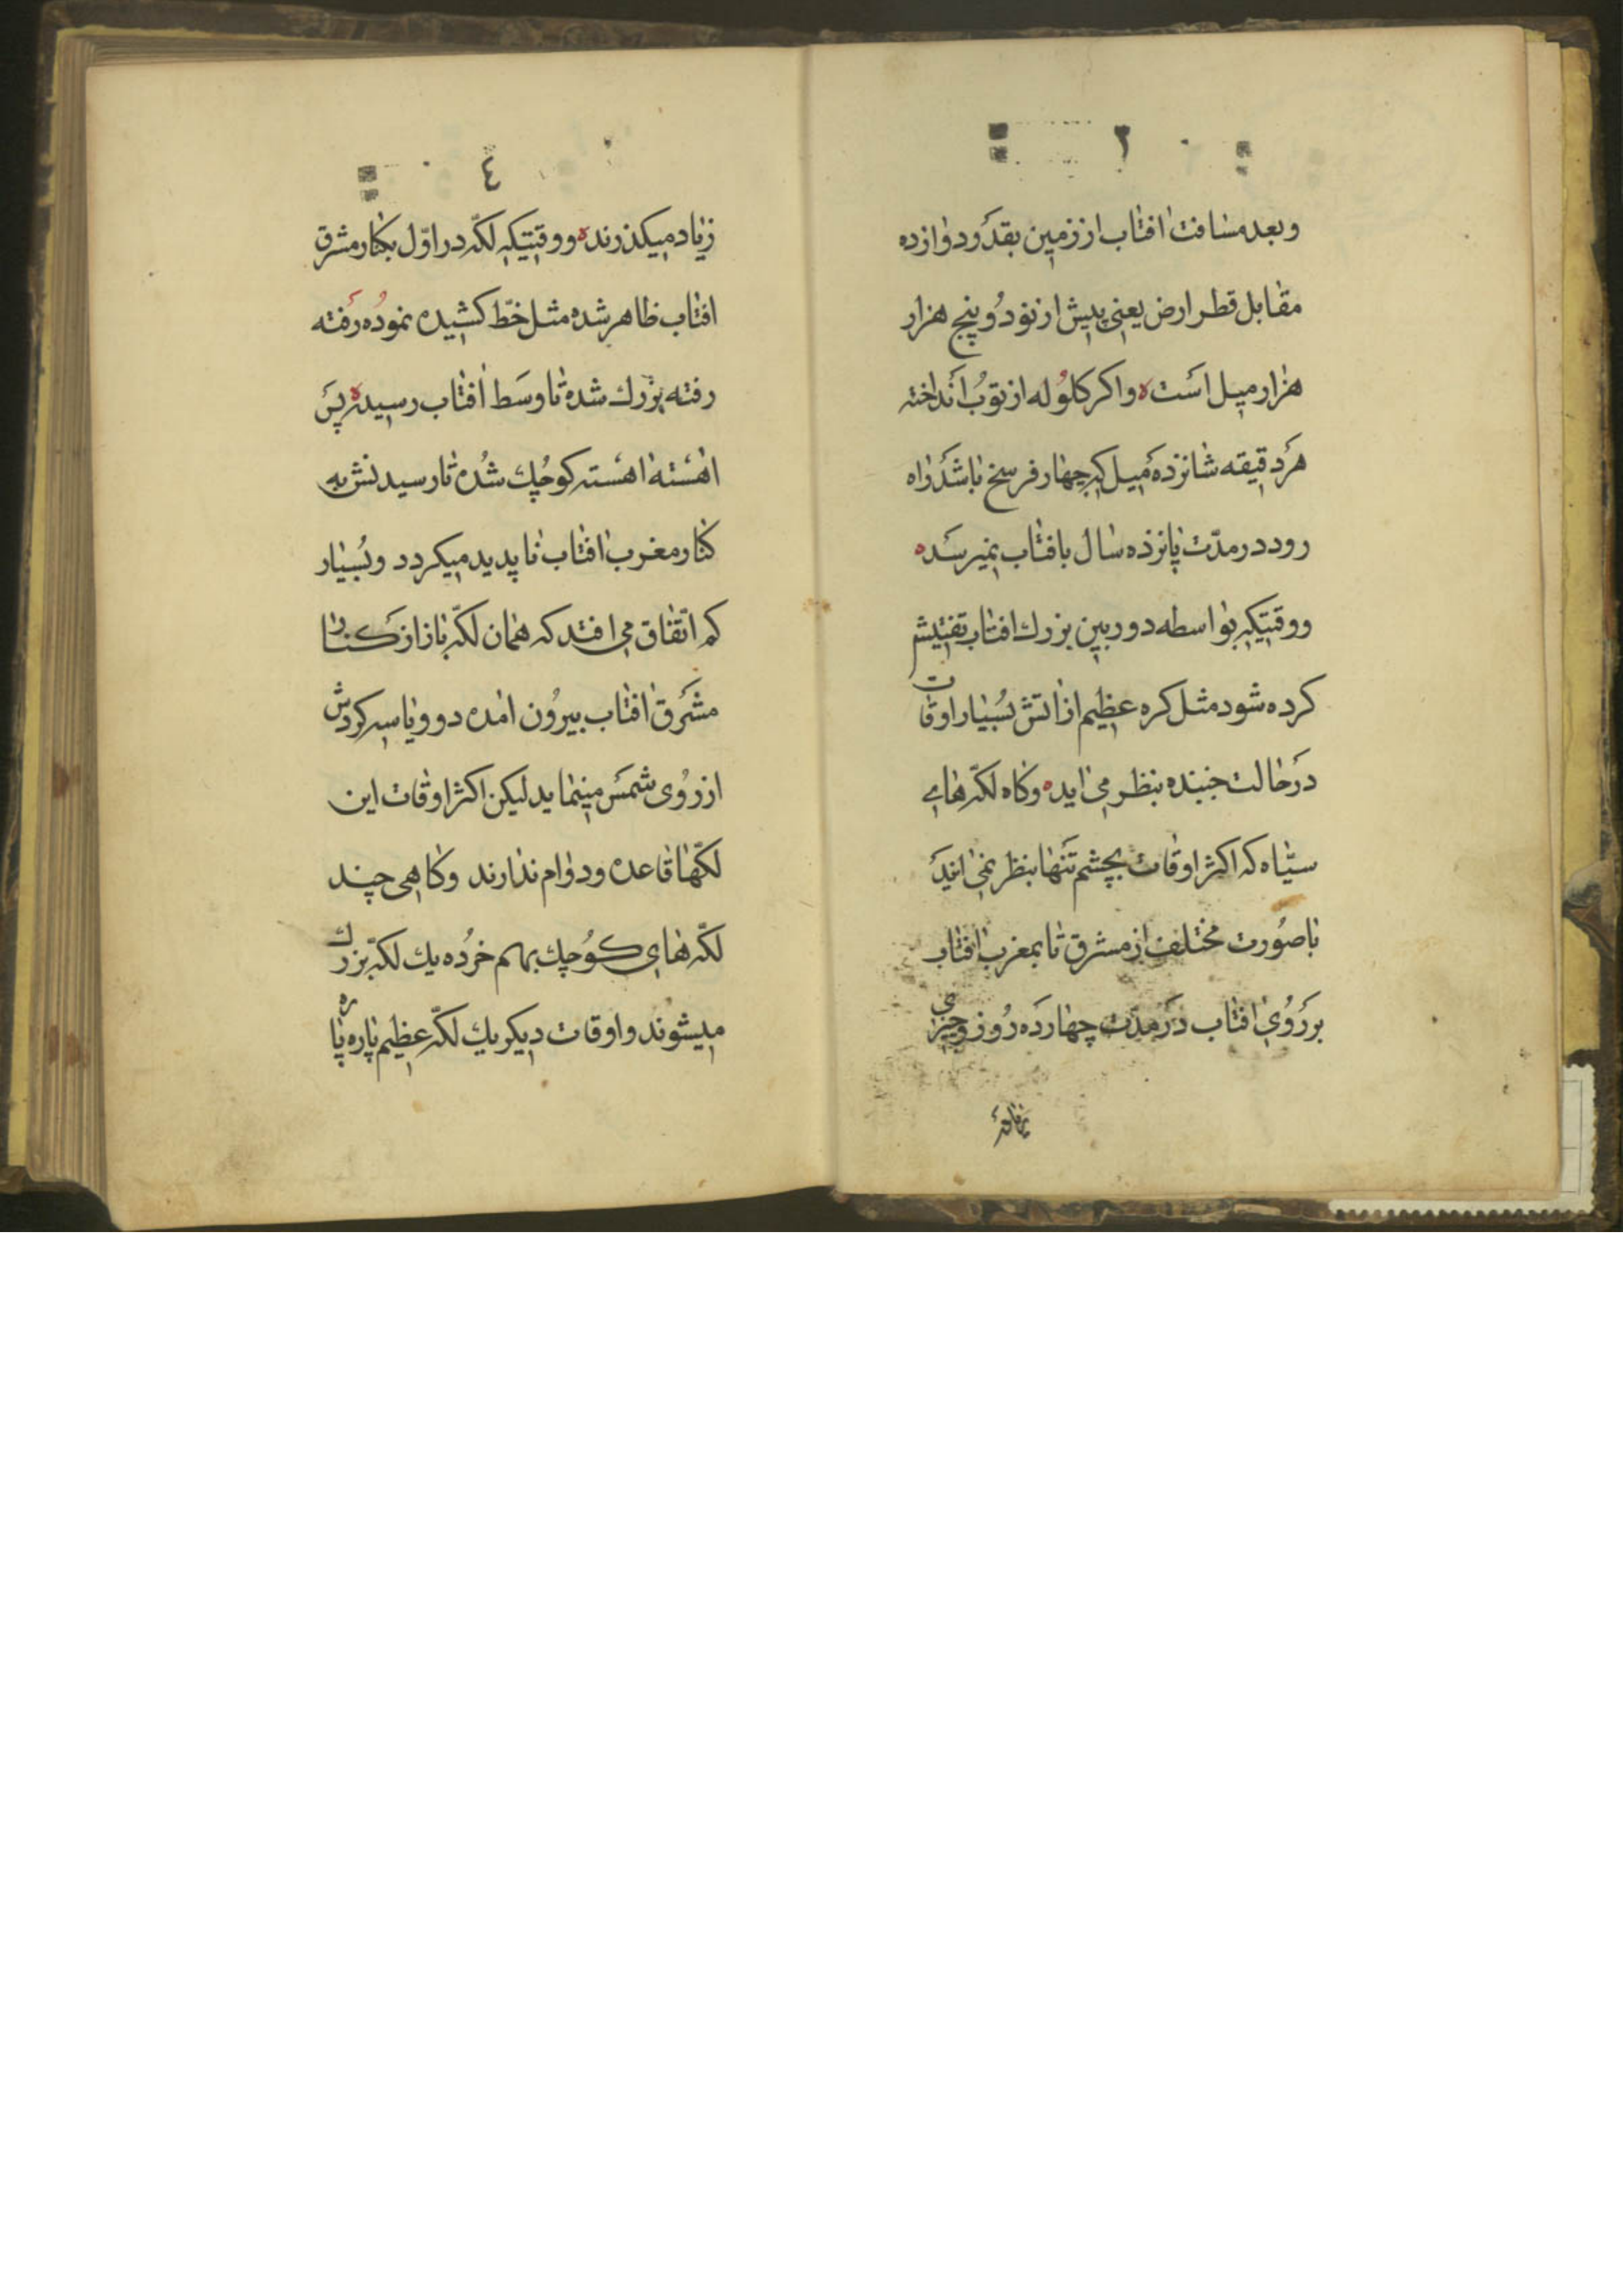 ٢
وبعد مسافت افتاب از زمین بقدر دوازده
مقابل قطر ارض یعنی پیش از نود و پنج هزار
هزار میل است ه واکر کلوله از توپ انداخته
هر دقیقه شانزده میل که چهار فرسخ باشد راه
رود در مدّت پانزده سال بافتاب نمیرسد ه
ووقتیکه بواسطه دوربین بزرك افتاب تفتیش
کرده شود مثل کره عظیم از اتش بسیار اوقات
در حالت جنبنده بنظر می اید ه وکاه لکّه های
سیّاه که اکثر اوقات بچشم تنها بنظر نمی ایند
با صورت مختلف از مشرق تا بمغرب افتاب
بر روی افتاب در مدّت چهارده روز وچیزی
٤
زیاد میکذرند ه ووقتیکه لکّه در اوّل بکنار مشرق
افتاب ظاهر شده مثل خطّ کشیده نموده رفته
رفته بزرك شده تا وسط افتاب رسیده ه پس
اهسته اهسته کوچك شده تا رسیدنش به
کنار مغرب افتاب ناپدید میکردد وبسیار
کم اتّفاق می افتد که همان لکّه باز از کنار
مشرق افتاب بیرون امده دو ویا سه کردش
از روی شمس مینماید لیکن اکثر اوقات این
لکّها قاعده ودوام ندارند وکاهی چند
لکّه های کوچك بهم خرده یك لکّه بزرك
میشوند واوقات دیکر یك لکّه عظیم پاره پاره